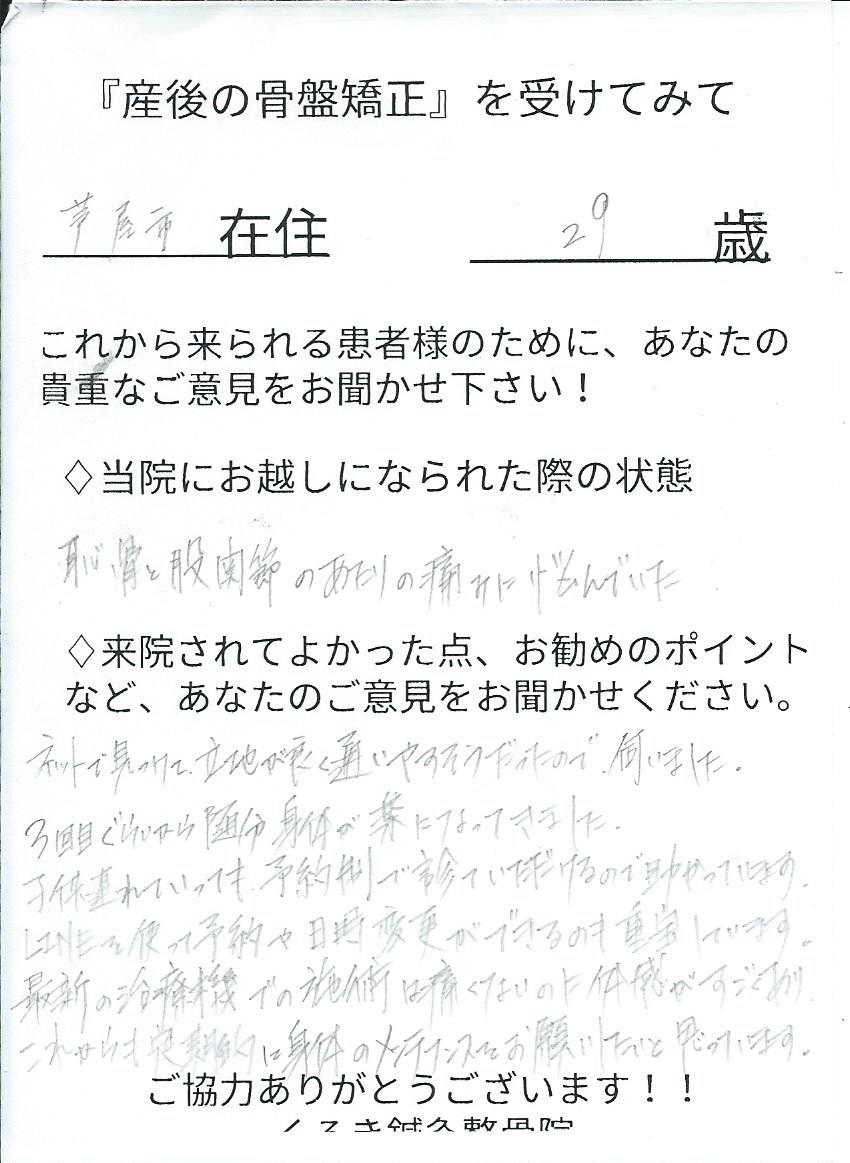 『産後の骨盤矯正』を受けてみて
芦屋市 在住 29 歳
これから来られる患者様のために、あなたの
貴重なご意見をお聞かせ下さい！
◇当院にお越しになられた際の状態
恥骨と股関節のあたりの痛みに悩んでいた
◇来院されてよかった点、お勧めのポイント
など、あなたのご意見をお聞かせください。
ネットで見つけて、立地が良く通いやすそうだったので、伺いました。
3回目ぐらいから随分身体が楽になってきました。
子供連れていっても、予約制で診ていただけるので助かっています。
LINEを使って予約や日時変更ができるのも重宝しています。
最新の治療機での施術は痛くないのに体感がすごくあり
これからも定期的に身体のメンテナンスをお願いしたいと思っています。
ご協力ありがとうございます！！
くろき鍼灸整骨院